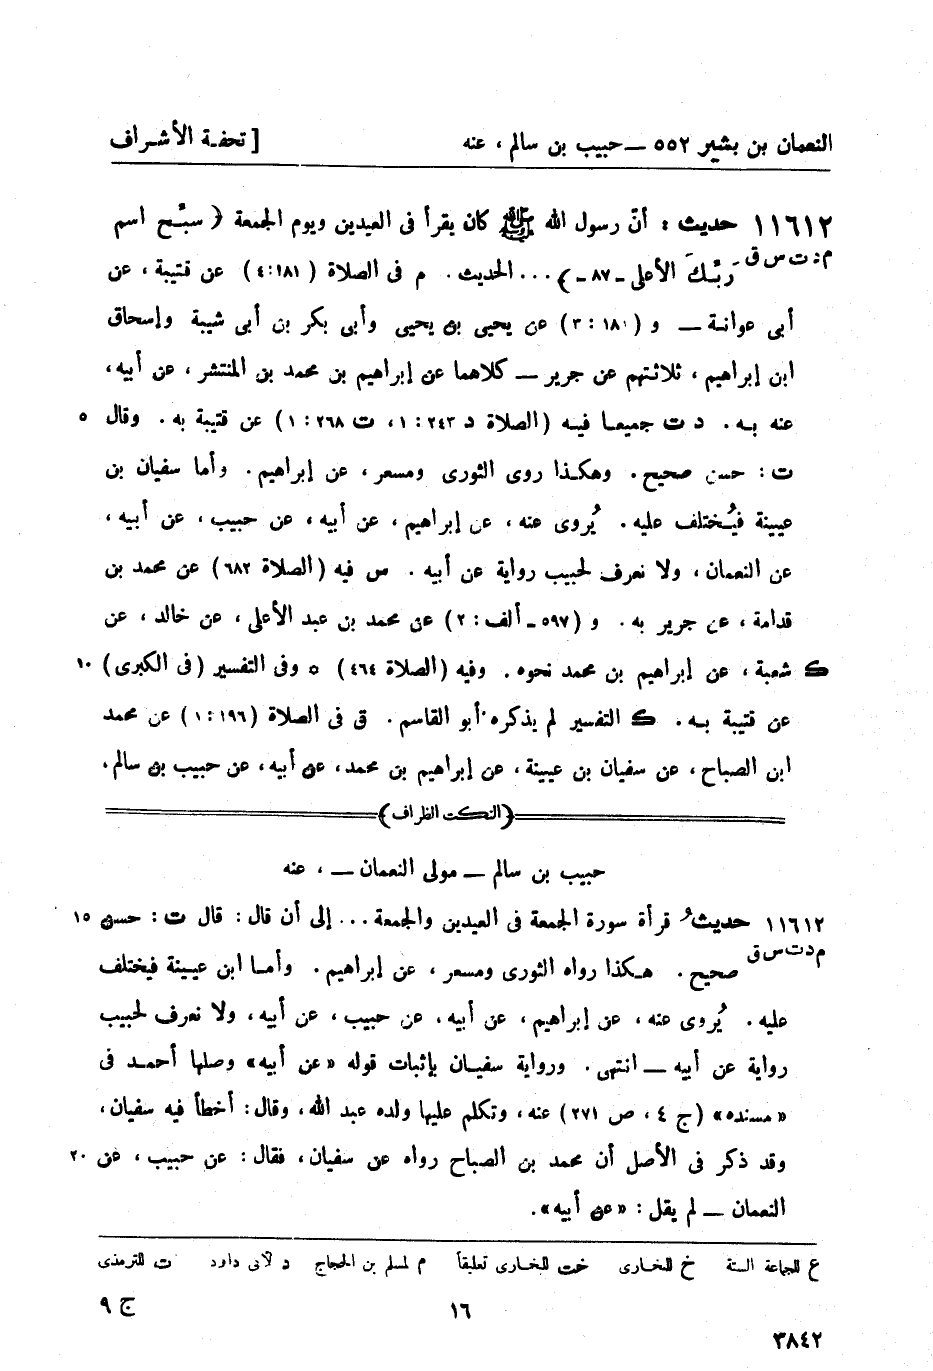 النعمان بن بشير ٥٥٢ ــ حبيب بن سالم ، عنه [ تحفة الأشراف
١١٦١٢ حديث : أنّ رسول الله ﷺ كان يقرأ فى العيدين ويوم الجمعة ﴿ سبّح اسم
م د ت س ق رَبّكَ الأعلى ـ ٨٧ ـ ﴾ ... الحديث . م فى الصلاة ( ١٨١ : ٤ ) عن قتيبة ، عن
أبى عوانة ــ و ( ١٨١ : ٣ ) عن يحيى بن يحيى وأبى بكر بن أبى شيبة وإسحاق
ابن إبراهيم ، ثلاثتهم عن جرير ــ كلاهما عن إبراهيم بن محمد بن المنتشر ، عن أبيه ،
عنه بـه . د ت جميعـا فيـه ( الصلاة د ٢٤٣ : ١ ، ت ٢٦٨ : ١ ) عن قتيبة به . وقال ٥
ت : حسن صحيح . وهكـذا روى الثورى ومسعر ، عن إبراهيم . وأما سفيان بن
عيينة فيُختلف عليه . يُروى عنه ، عن إبراهيم ، عن أبيه ، عن حبيب ، عن أبيه ،
عن النعمان ، ولا نعرف لحبيب رواية عن أبيه . س فيه ( الصلاة ٦٨٢ ) عن محمد بن
قدامة ، عن جرير به . و ( ٥٩٧ ـ ألف : ٢ ) عن محمد بن عبد الأعلى ، عن خالد ، عن
ك شعبة ، عن إبراهيم بن محمد نحوه . وفيه ( الصلاة ٤٦٤ ) ٥ وفى التفسير ( فى الكبرى ) ١٠
عن قتيبة بـه . ك التفسير لم يذكره أبو القاسم . ق فى الصلاة ( ١٩٦ : ١ ) عن محمد
ابن الصباح ، عن سفيان بن عيينة ، عن إبراهيم بن محمد ، عن أبيه ، عن حبيب بن سالم .
﴿ النكت الظراف ﴾
حبيب بن سالم ــ مولى النعمان ــ ، عنه
١١٦١٢ حديثُ قرأة سورة الجمعة فى العيدين والجمعة ... إلى أن قال : قال ت : حسن ١٥
م د ت س ق صحيح . هـكذا رواه الثورى ومسعر ، عن إبراهيم . وأمـا ابن عيينة فيختلف
عليه . يُروى عنه ، عن إبراهيم ، عن أبيه ، عن حبيب ، عن أبيه ، ولا نعرف لحبيب
رواية عن أبيه ــ انتهى . ورواية سفيـان بإثبات قوله « عن أبيه » وصلها أحمـد فى
« مسنده » ( ج ٤ ، ص ٢٧١ ) عنه ، وتكلم عليها ولده عبد الله ، وقال : أخطأ فيه سفيان ،
وقد ذكر فى الأصل أن محمد بن الصباح رواه عن سفيان ، فقال : عن حبيب ، عن ٢٠
النعمان ــ لم يقل : « عن أبيه » .
ع للجماعة الستة خ للبخارى خت للبخارى تعليقاً م لمسلم بن الحجاج د لأبى داود ت للترمذى
١٦ ج ٩
٣٨٤٢